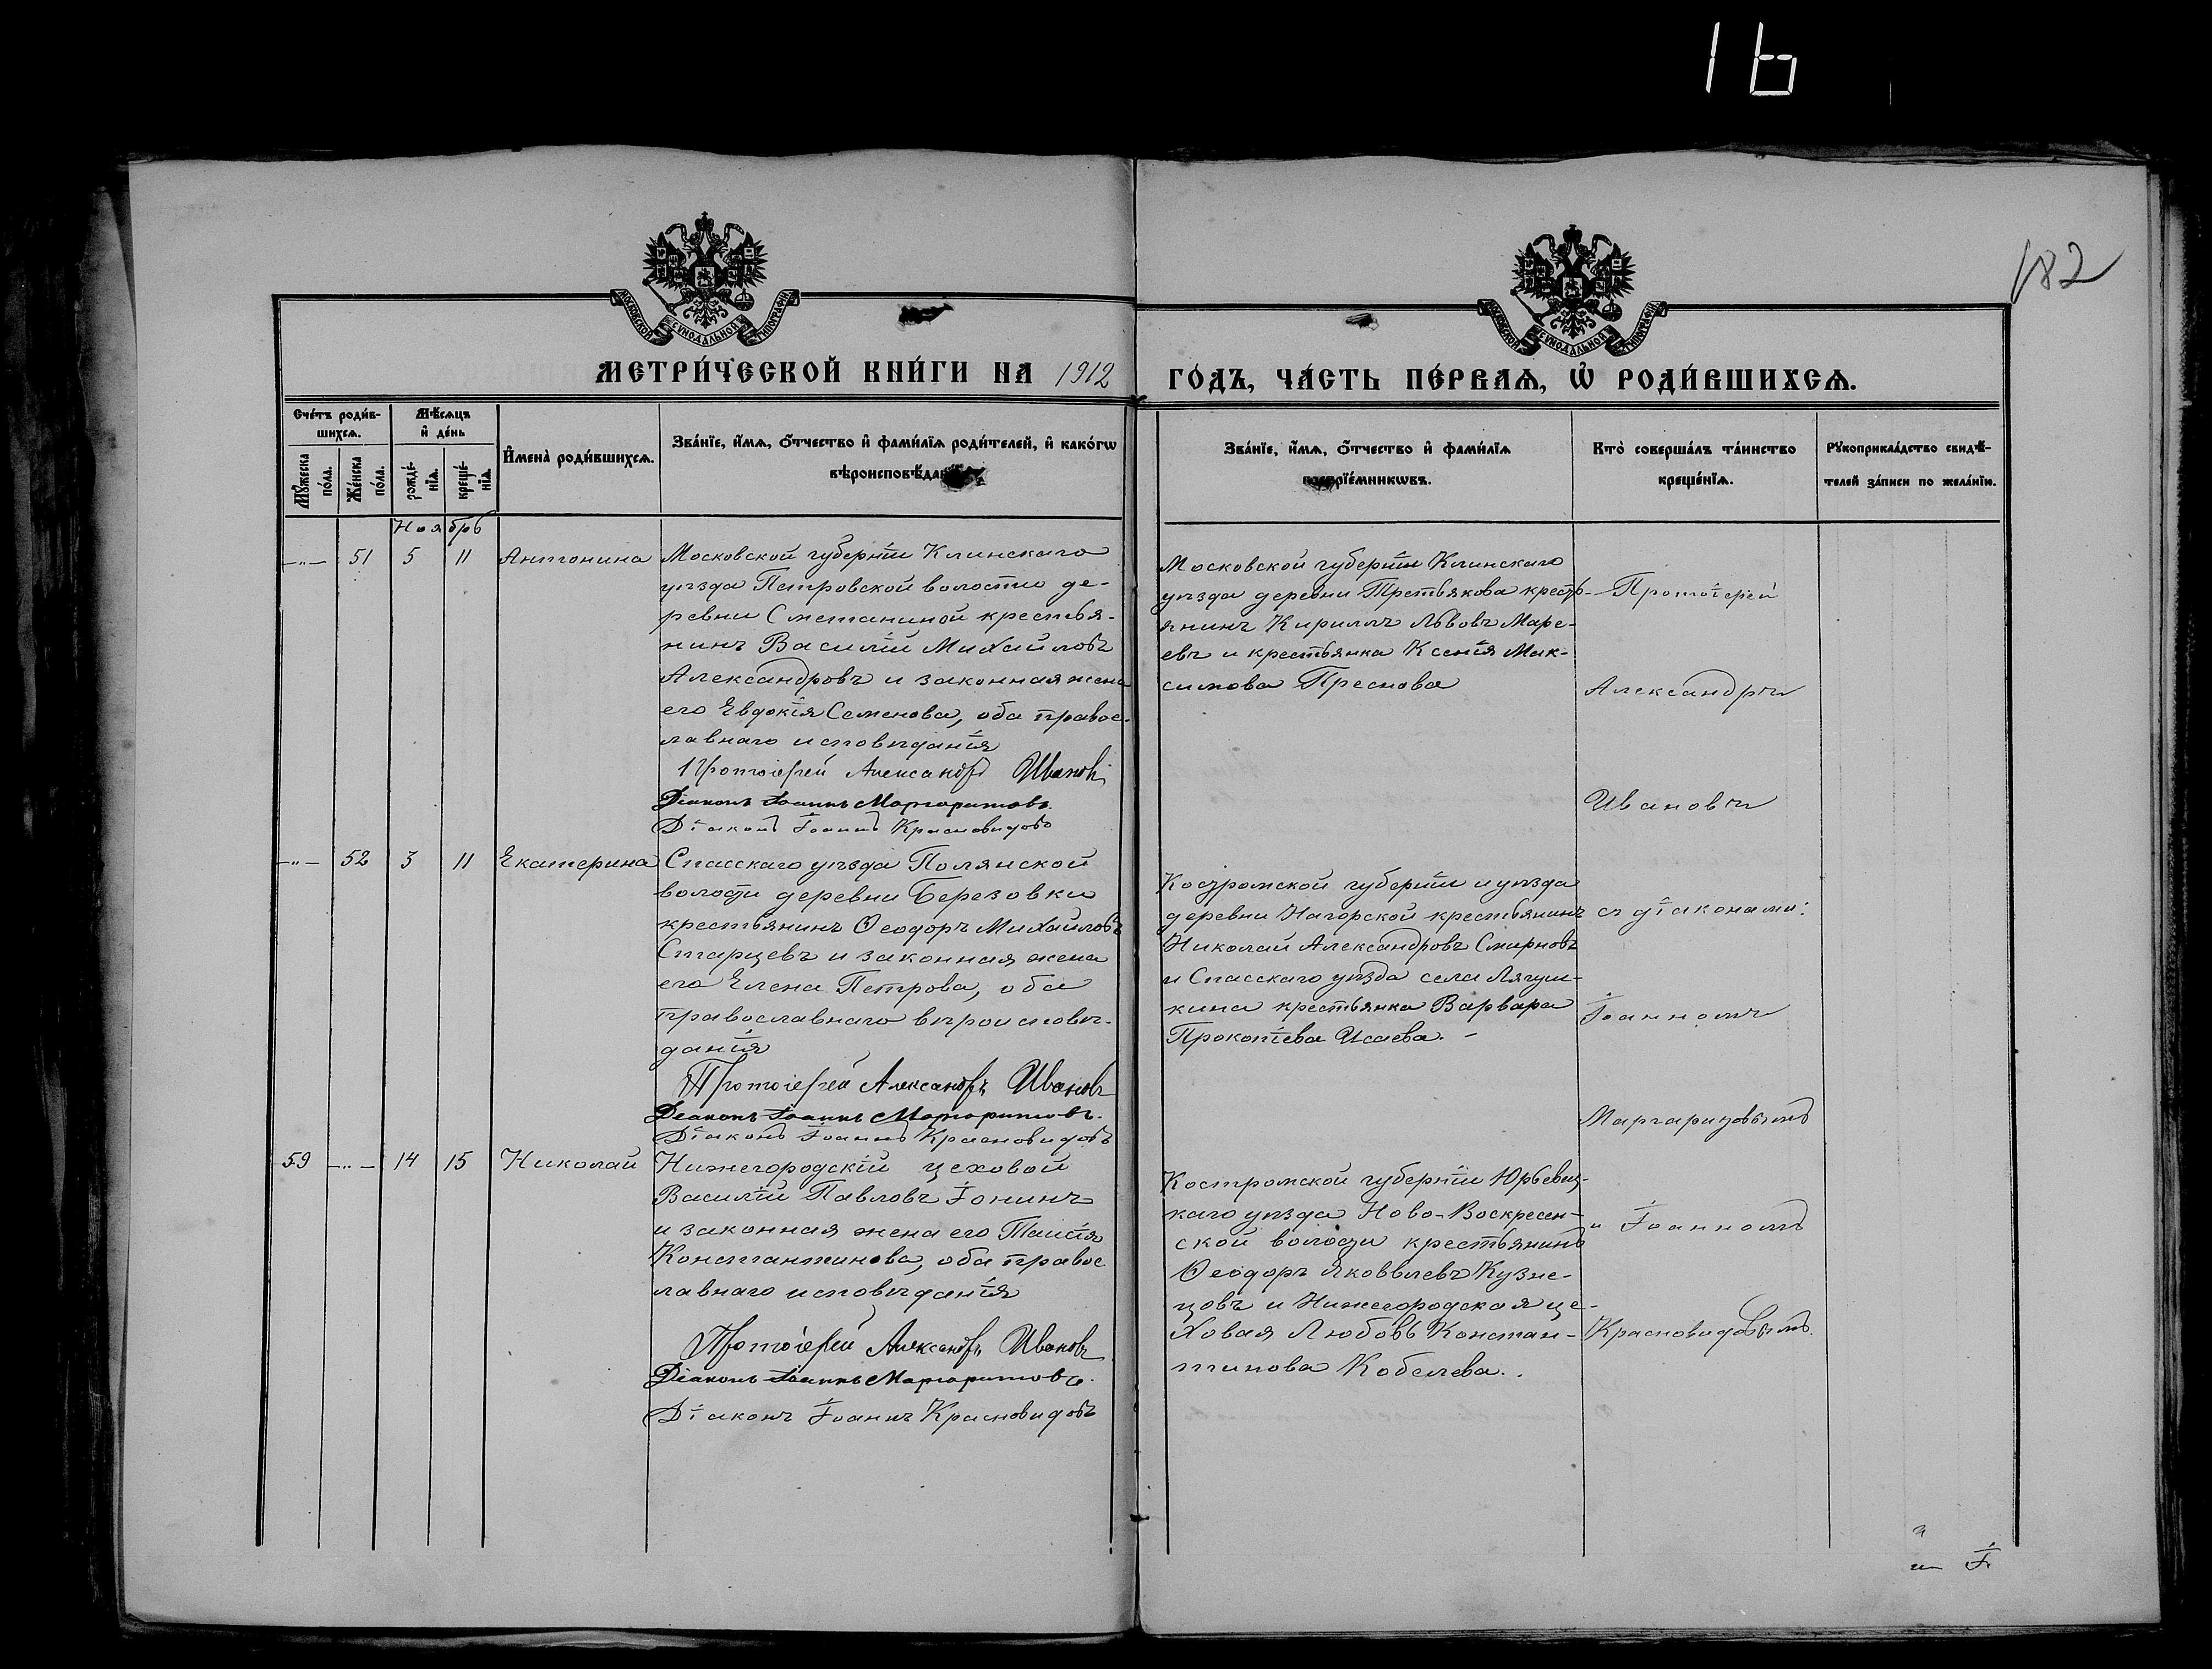 16
182
МОСКОВСКОЙ СѴНОДАЛЬНОЙ ТИПОГРАФІИ
МОСКОВСКОЙ СѴНОДАЛЬНОЙ ТИПОГРАФІИ
МЕТРИ́ЧЕСКОЙ КНИ́ГИ НА 1912 ГО́ДЪ, ЧА́СТЬ ПЕ́РВАѦ, Ѡ҆ РОДИ́ВШИХСѦ.
Сче́тъ роди́в-
шихсѧ.
Мꙋ́жеска по́ла.
Же́нска по́ла.
Мѣ́сѧцъ
и҆ де́нь
рожде́-
нїѧ.
креще́-
нїѧ.
И҆мена̀ роди́вшихсѧ.
Зва́нїе, и҆́мѧ, ѻ҆́тчество и҆ фами́лїѧ роди́телей, и҆ како́гѡ
вѣроисповѣ́да
Зва́нїе, и҆́мѧ, ѻ҆́тчество и҆ фами́лїѧ
воспрїе́мникѡвъ.
Кто̀ соверша́лъ та́инство
креще́нїѧ.
Рꙋкоприкла́дство свидѣ́-
телей за́писи по жела́нїю.
Ноябрь
—„— 51 5 11 Антонина
Московской губерніи Клинскаго
уѣзда Петровской волости де-
ревни Сметаниной крестья-
нинъ Василій Михайловъ
Александровъ и законная жена
его Евдокія Семенова, оба правос-
лавнаго исповѣданія
Протоіерей Александръ Ивановъ
Діаконъ Іоаннъ Маргаритовъ.
Діаконъ Іоаннъ Красновидовъ
Московской губерніи Клинскаго
уѣзда деревни Третьякова кресть-
янинъ Кириллъ Львовъ Маре-
евъ и крестьянка Ксенія Мак-
симова Преснова
Протоіерей
Александръ
Ивановъ
—„— 52 3 11 Екатерина
Спасскаго уѣзда Полянской
волости деревни Березовки
крестьянинъ Ѳеодоръ Михайловъ
Старцевъ и законная жена
его Елена Петрова, оба
православнаго вѣроисповѣ-
данія
Протоіерей Александръ Ивановъ
Діаконъ Іоаннъ Маргаритовъ.
Діаконъ Іоаннъ Красновидовъ
Костромской губерніи и уѣзда
деревни Нагорской крестьянинъ
Николай Александровъ Смирновъ
и Спасскаго уѣзда села Лягуш-
кина крестьянка Варвара
Прокопіева Исаева. -
съ діаконами:
Іоанномъ
Маргаритовымъ
59 —„— 14 15 Николай
Нижегородскій цеховой
Василій Павловъ Іонинъ
и законная жена его Таисія
Константинова, оба правос
лавнаго исповѣданія
Протоіерей Александръ Ивановъ
Діаконъ Іоаннъ Маргаритовъ.
Діаконъ Іоаннъ Красновидовъ
Костромской губерніи Юрьевец-
каго уѣзда Ново-Воскресен-
ской волости крестьянинъ
Ѳеодоръ Яковлевъ Кузне-
цовъ и Нижегородская це-
ховая Любовь Констан-
тинова Кобелева..
и Іоанномъ
Красновидовымъ.